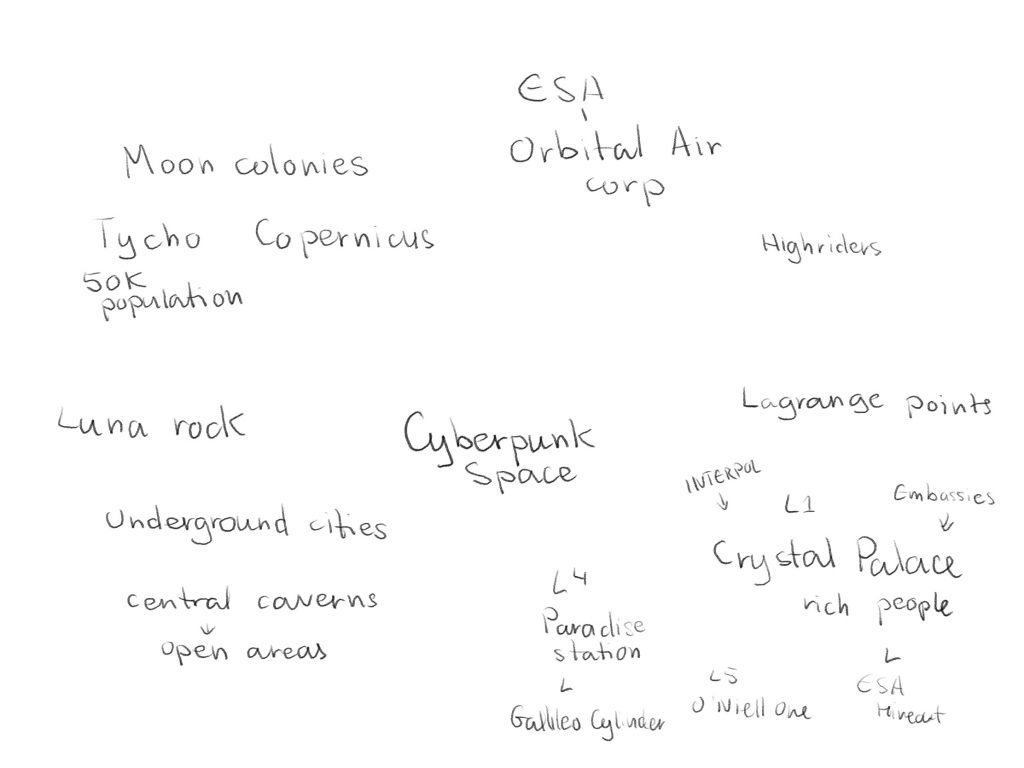 ESA
Orbital Air
corp
Moon colonies
Tycho Copernicus
50K
population
Highriders
Lagrange points
Luna rock
Cyberpunk
Space
INTERPOL
L1
Embassies
Underground cities
Crystal Palace
rich people
central caverns
open areas
L4
Paradise
station
Gallileo Cylinder
L5
O'Niell One
ESA